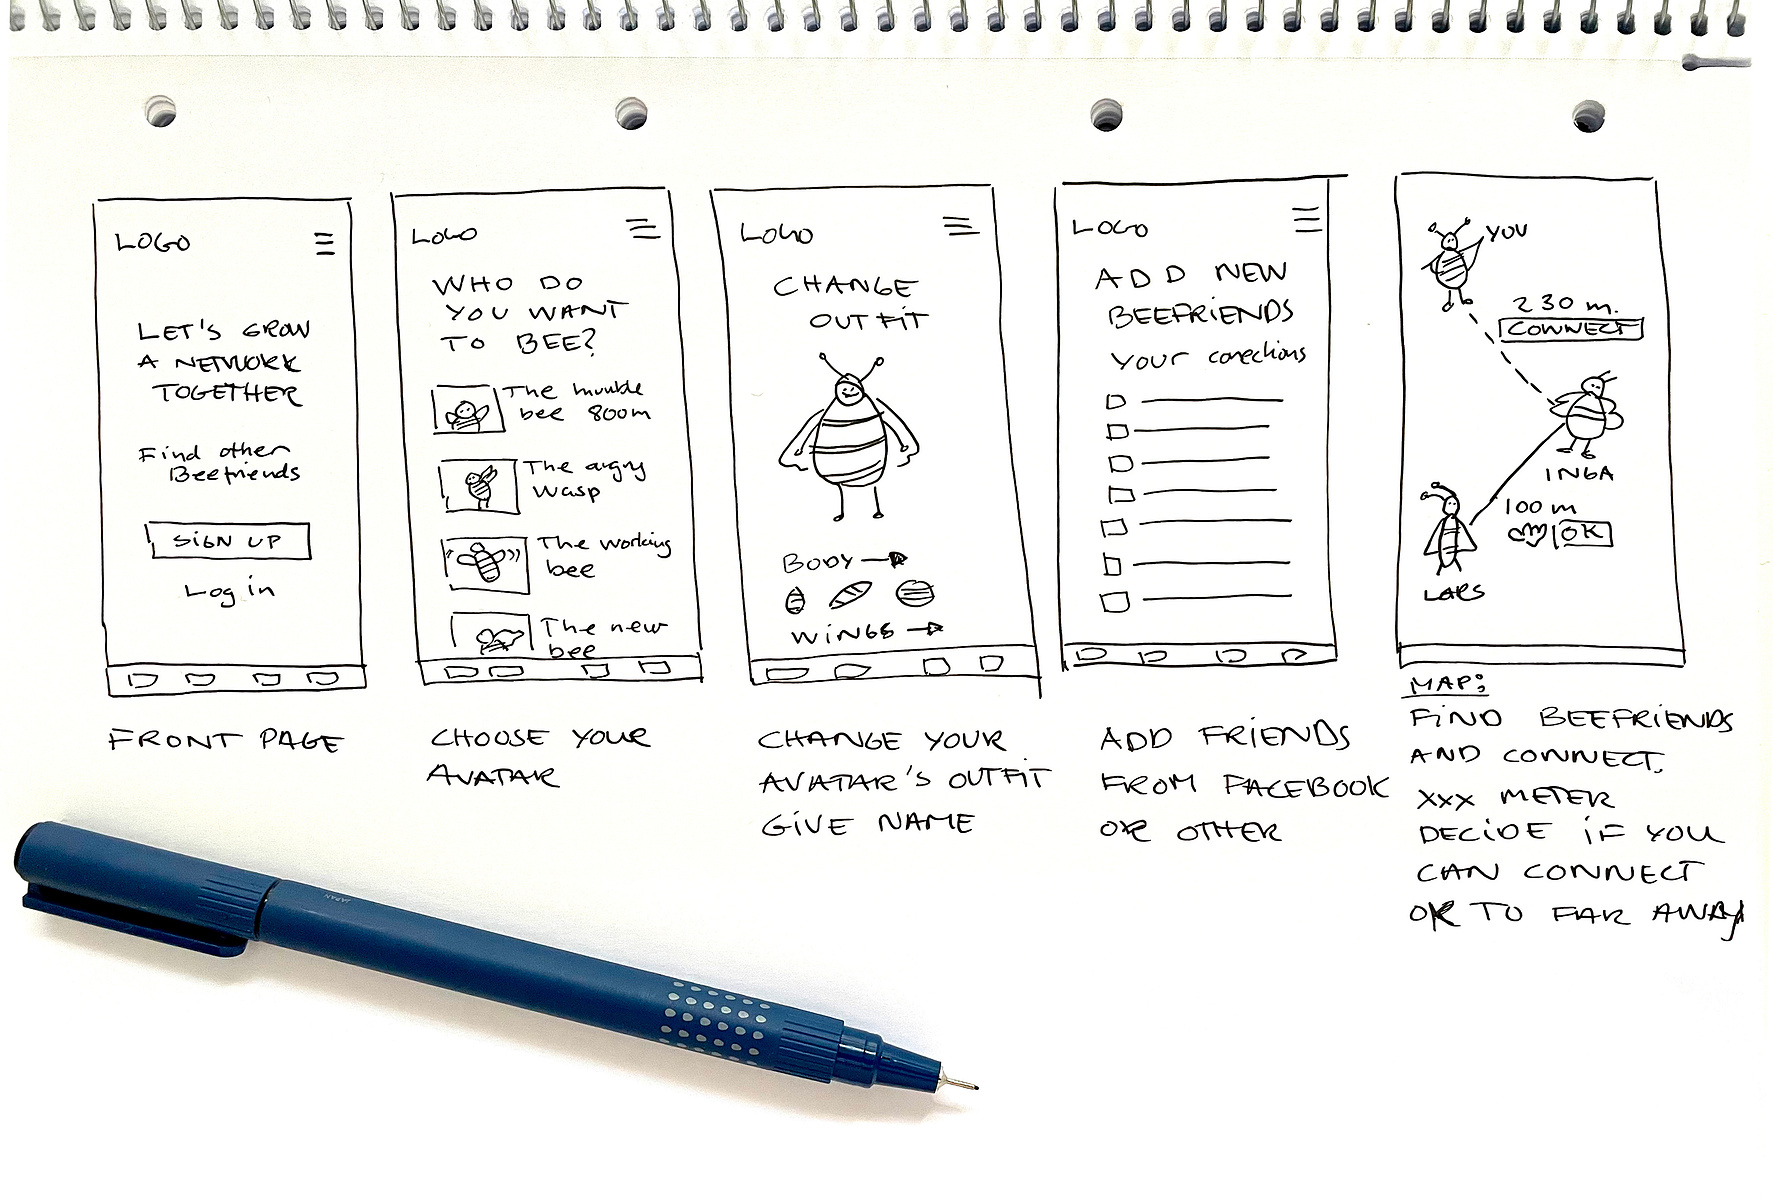 LOGO
LET'S GROW
A NETWORK
TOGETHER
Find other
Beefriends
SIGN UP
Log in
FRONT PAGE
LOGO
WHO DO
YOU WANT
TO BEE?
The humble
bee 800m
The angry
wasp
The working
bee
The new
bee
CHOOSE YOUR
AVATAR
LOGO
CHANGE
OUTFIT
BODY
WINGS
CHANGE YOUR
AVATAR'S OUTFIT
GIVE NAME
LOGO
ADD NEW
BEEFRIENDS
Your conections
ADD FRIENDS
FROM FACEBOOK
OR OTHER
YOU
230 m.
CONNECT
INGA
100 m
OK
LARS
MAP:
FIND BEEFRIENDS
AND CONNECT.
XXX METER
DECIDE IF YOU
CAN CONNECT
OR TO FAR AWAY
JAPAN